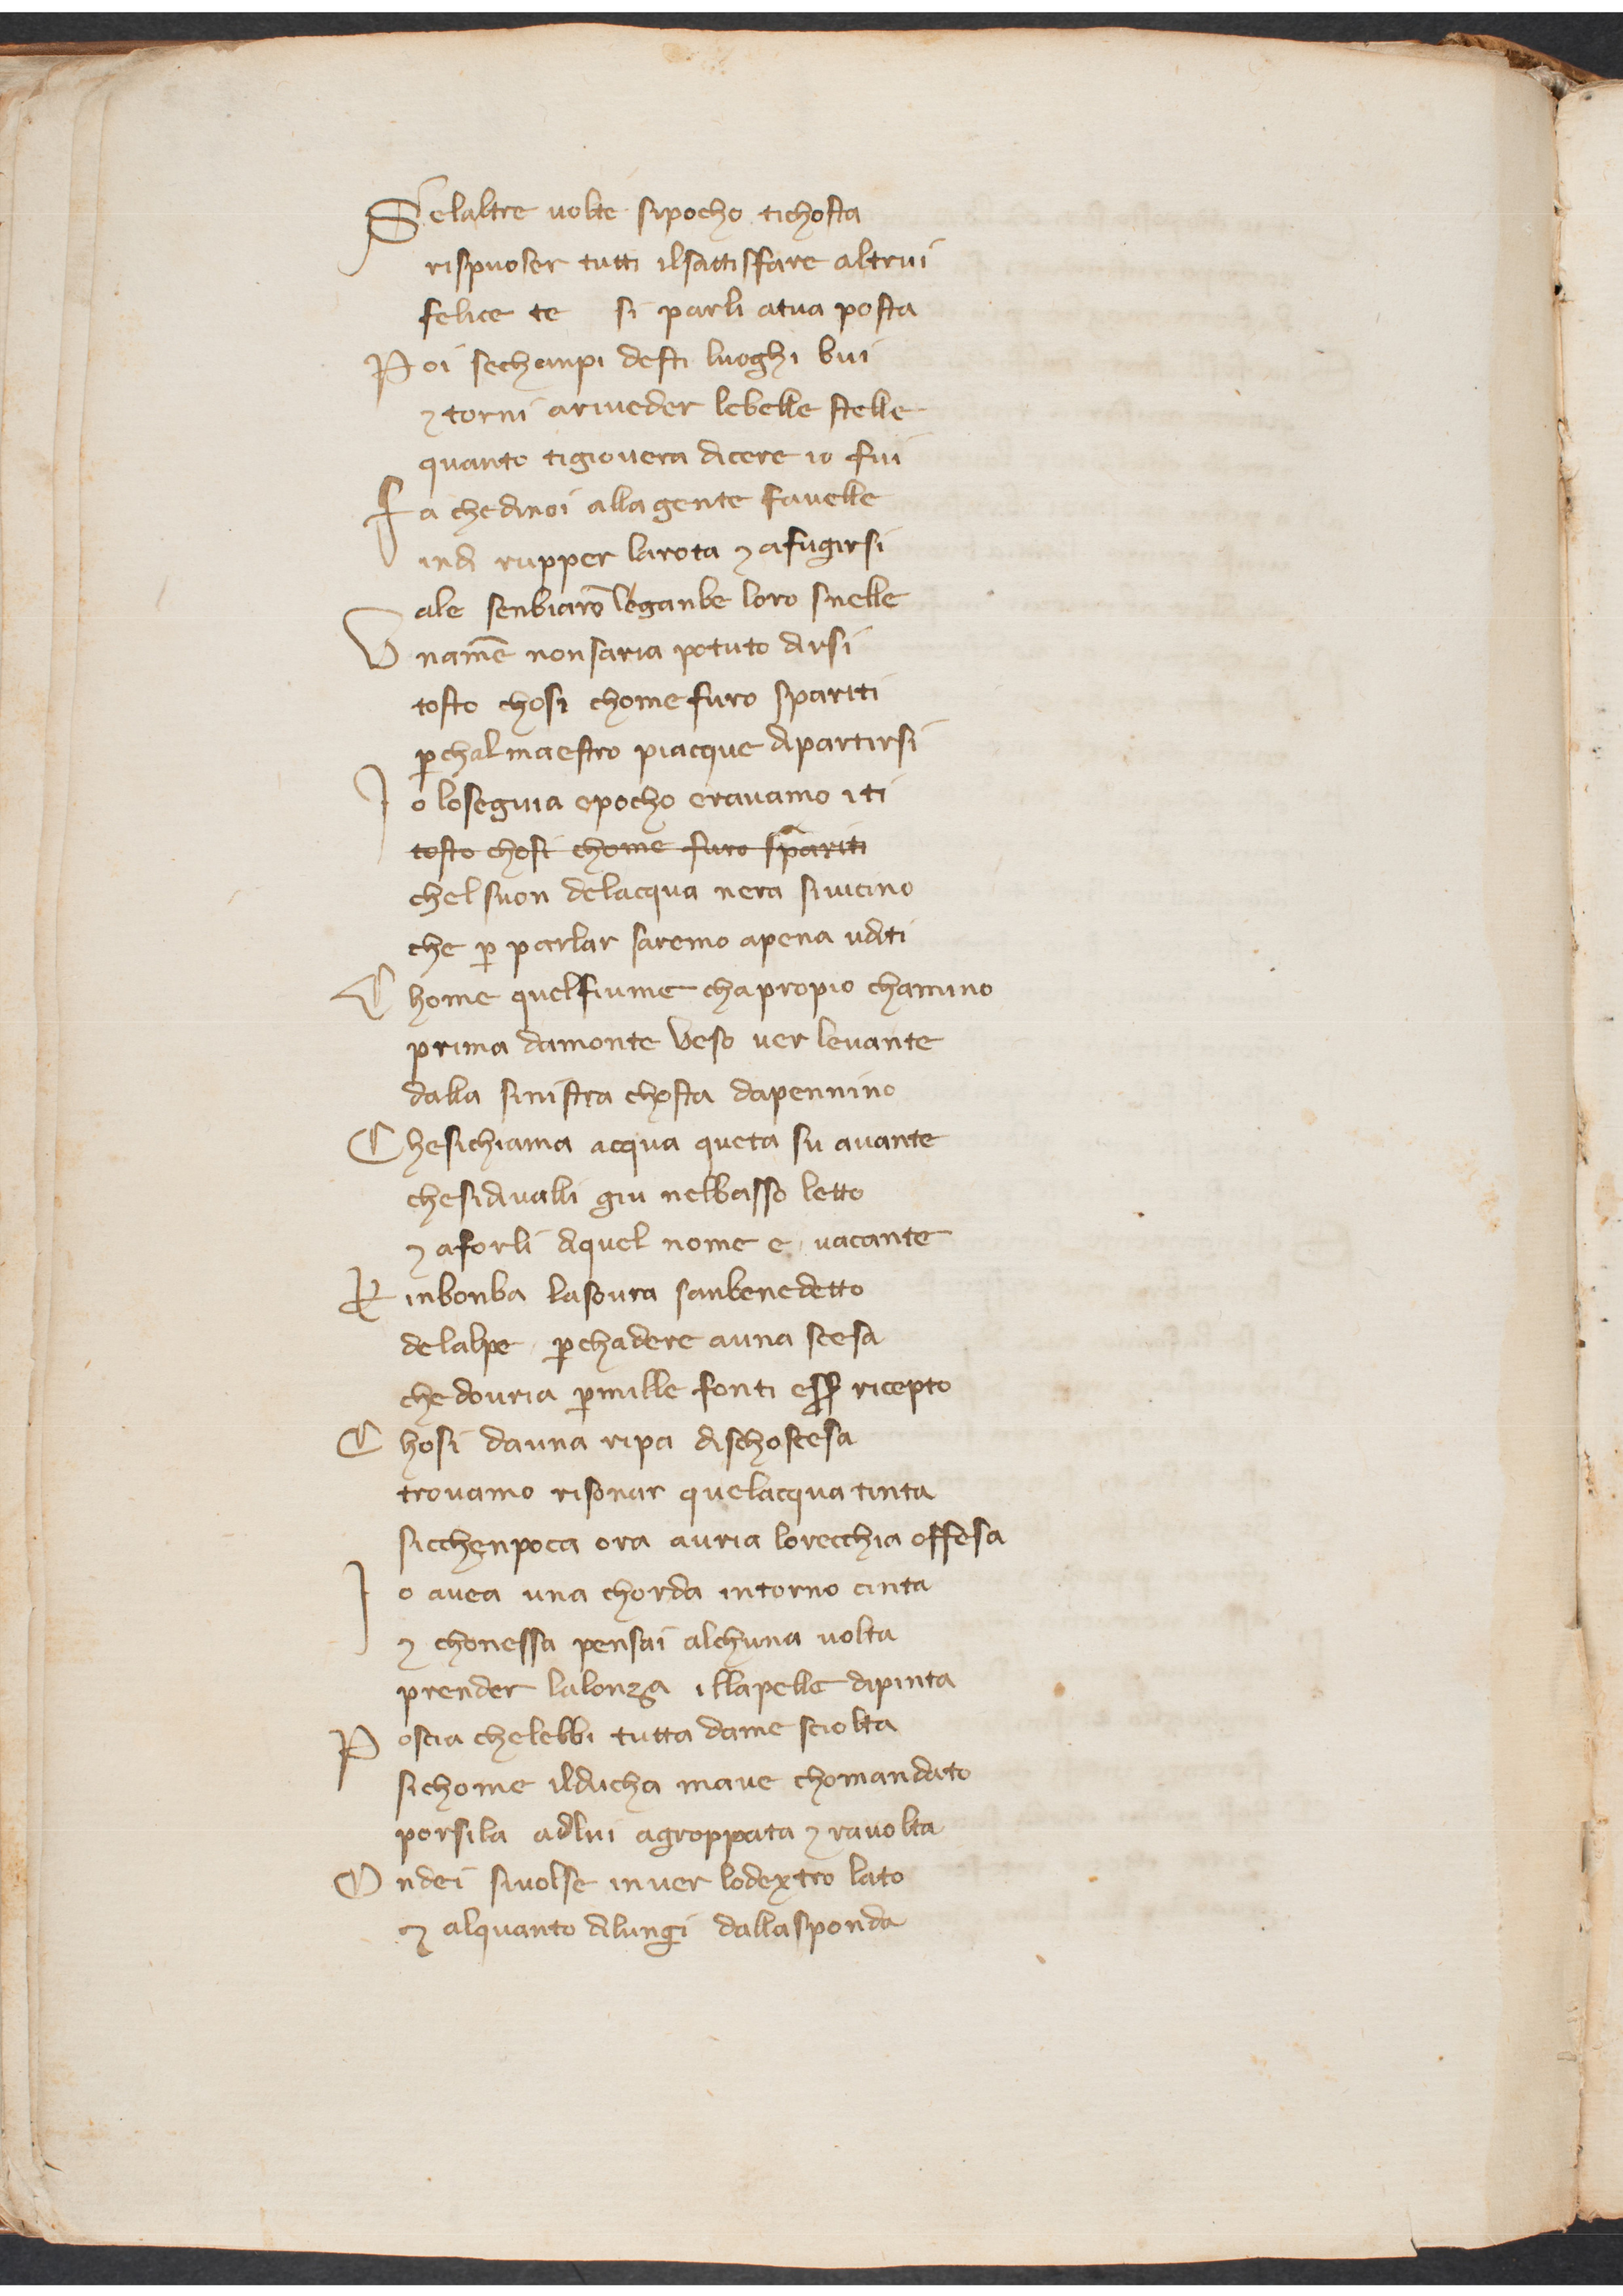 Selaltre uolte sipocho tichosta
rispuoser tutti ilsattisffare altrui
felice te si parli atua posta
Poi sechanpi desti luoghi bui
⁊ torni ariueder lebelle stelle
quanto tigiouera dicere io fui
Fa chedinoi alla gente fauelle
indi rupper larota ⁊ afugirsi
ale senbiarō leganbe loro snelle
Vnamē nonsaria potuto dirsi
tosto chosi chome furo spariti
ꝑchal maestro piacque dipartirsi
Io loseguia epocho erauamo iti
tosto chosi chome furo spariti
chel suon delacqua nera siuicino
che ꝑ parlar saremo apena uditi
Chome quelfiume chapropio chamino
prima damonte Veso uer leuante
dalla sinistra chosta dapennino
Chesichiama acqua queta su auante
chesidiualli giu nelbasso letto
⁊ aforli diquel nome e uacante
Rinbonba lasoura sanbenedetto
delalpe ꝑchadere auna scesa
chedouria ꝑmille fonti esser ricepto
Chosi dauna ripa dischoscesa
trouamo risonar quelacqua tinta
sicchenpoca ora auria lorecchia offesa
Io auea una chorda intorno cinta
⁊ chonessa pensai alchuna uolta
prender lalonza illapelle dipinta
Poscia chelebbi tutta dame sciolta
sichome ilducha maue chomandato
porsila adlui agroppata ⁊ rauolta
Ondei siuolse inuer lodextro lato
⁊ alquanto dilungi dallasponda